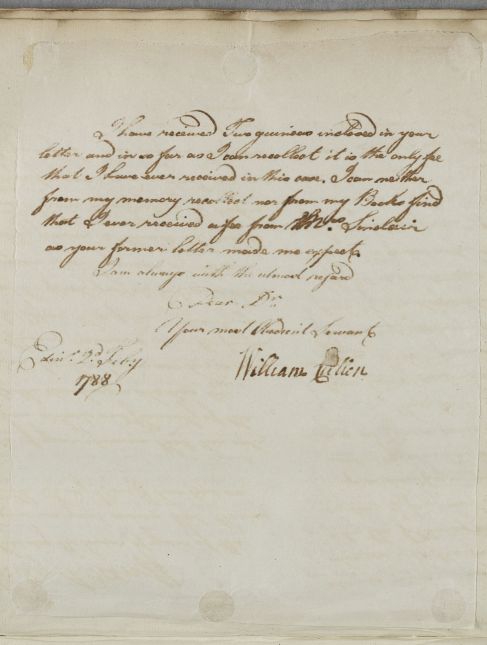 I have received Two guineas inclosed in your
letter and in so far as I can recollect it is the only fee
that I have ever received in this case. I can neither
from my memory recollect nor from my Books find
that I ever received a fee from Mrs. Sinclair
as your former letter made me expect.
I am always with the utmost regard
Dear Dr.
Your most Obedient Servant
Edinr. 2d. Feby
1788
William Cullen